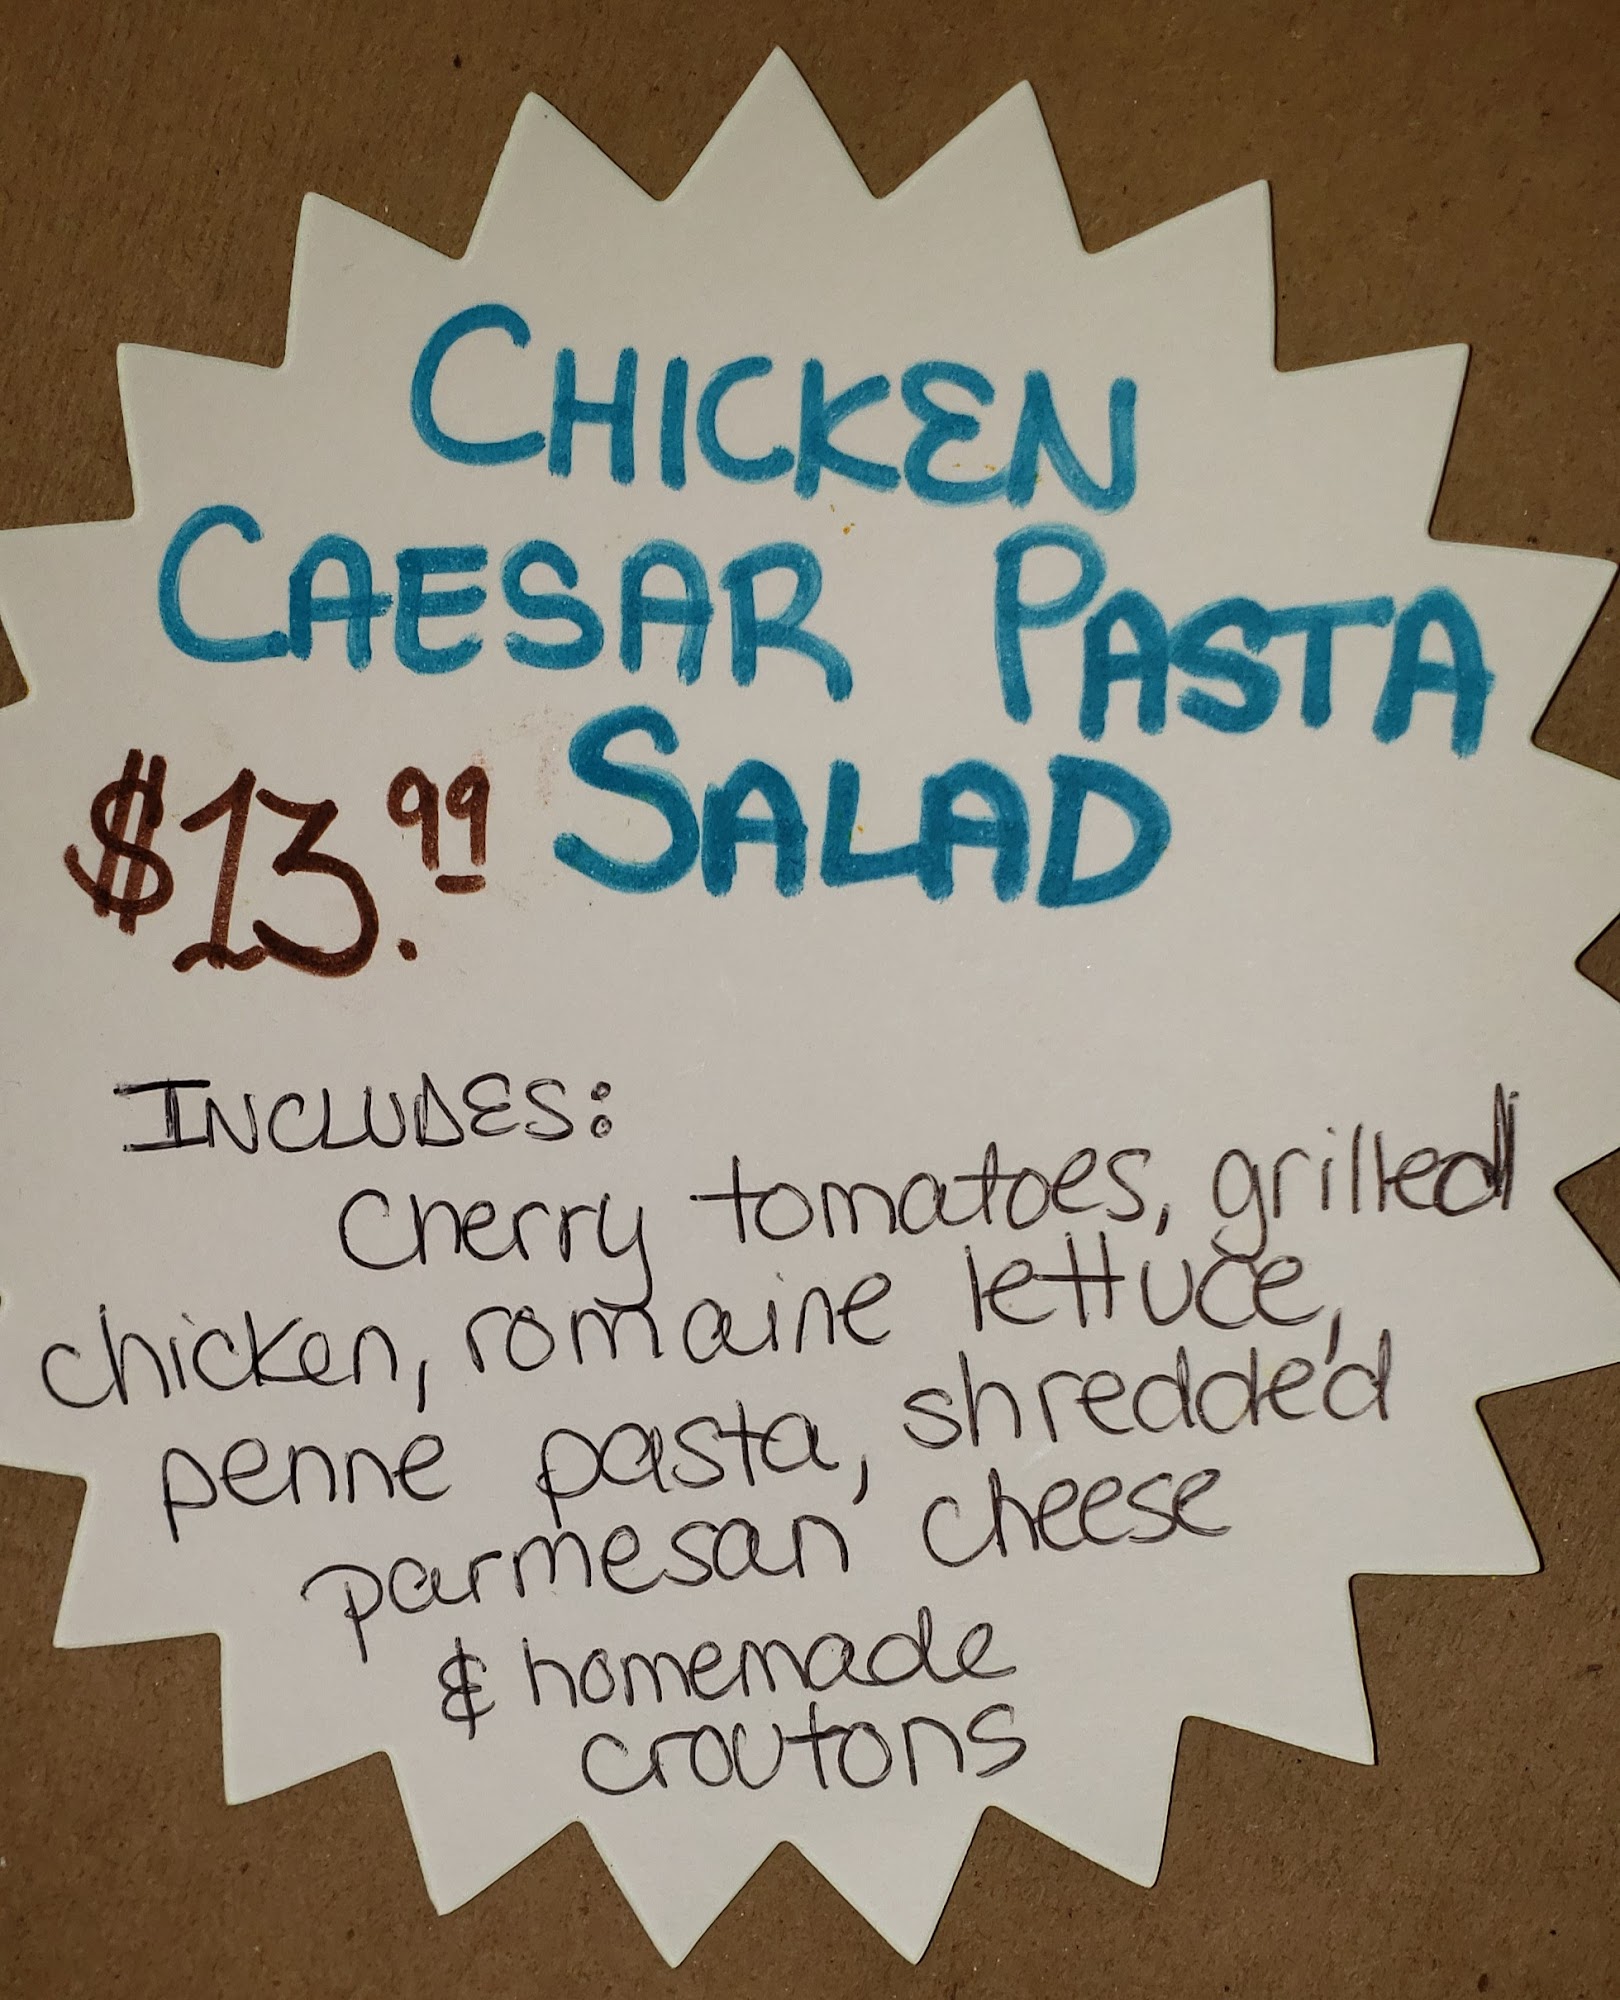 CHICKEN
CAESAR PASTA
SALAD
$13.99
INCLUDES:
cherry tomatoes, grilled
chicken, romaine lettuce,
penne pasta, shredded
parmesan cheese
& homemade
croutons